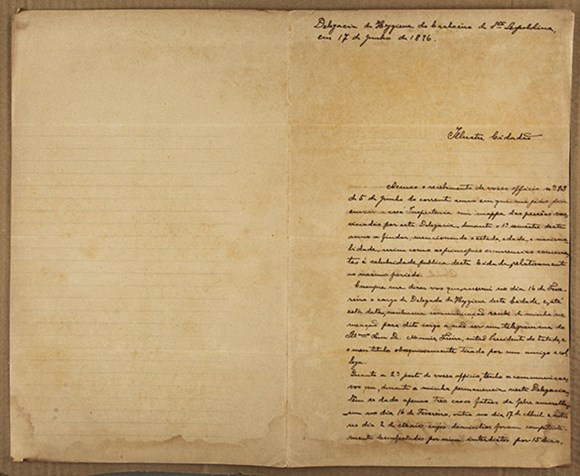 Delegacia de Hygiene do Cachoeiro de Sta Leopoldina,
em 17 de Junho de 1896.
Illustre Cidadão
Accuso o recebimento de vosso officio nº 83
de 5 de Junho do corrente anno em que me pedis para
enviar a essa Inspectoria um mappa das pessôas vac-
cinadas por esta Delegacia, durante o 1º semestre deste
anno a findar, mencionando o estado, edade, e naciona-
lidade, assim como as principaes occurrencias concernen-
tes á salubridade publica desta Cidade, relativamente
ao mesmo periodo.
Cumpre-me dizer-vos que assumi no dia 16 de Feve-
reiro o cargo de Delegado de Hygiene desta Cidade, e, até
esta data, nenhuma communicação recebi de minha no-
meação para dito cargo a não ser um telegramma do
Dr. Moniz Freire, então Presidente do Estado, e
o meu titulo obsequiosamente tirado por um amigo e col-
lega.
Quanto a 2ª parte de vosso officio, tenho a communicar-
vos que, durante a minha permanencia nesta Delegacia,
tem se dado apenas tres casos fataes de febre amarella,
um no dia 16 de Fevereiro, outro no dia 17 de Abril e outro
no dia 2 de Maio, cujos domicilios foram competente-
mente desinfectados por mim interdictos por 15 dias,